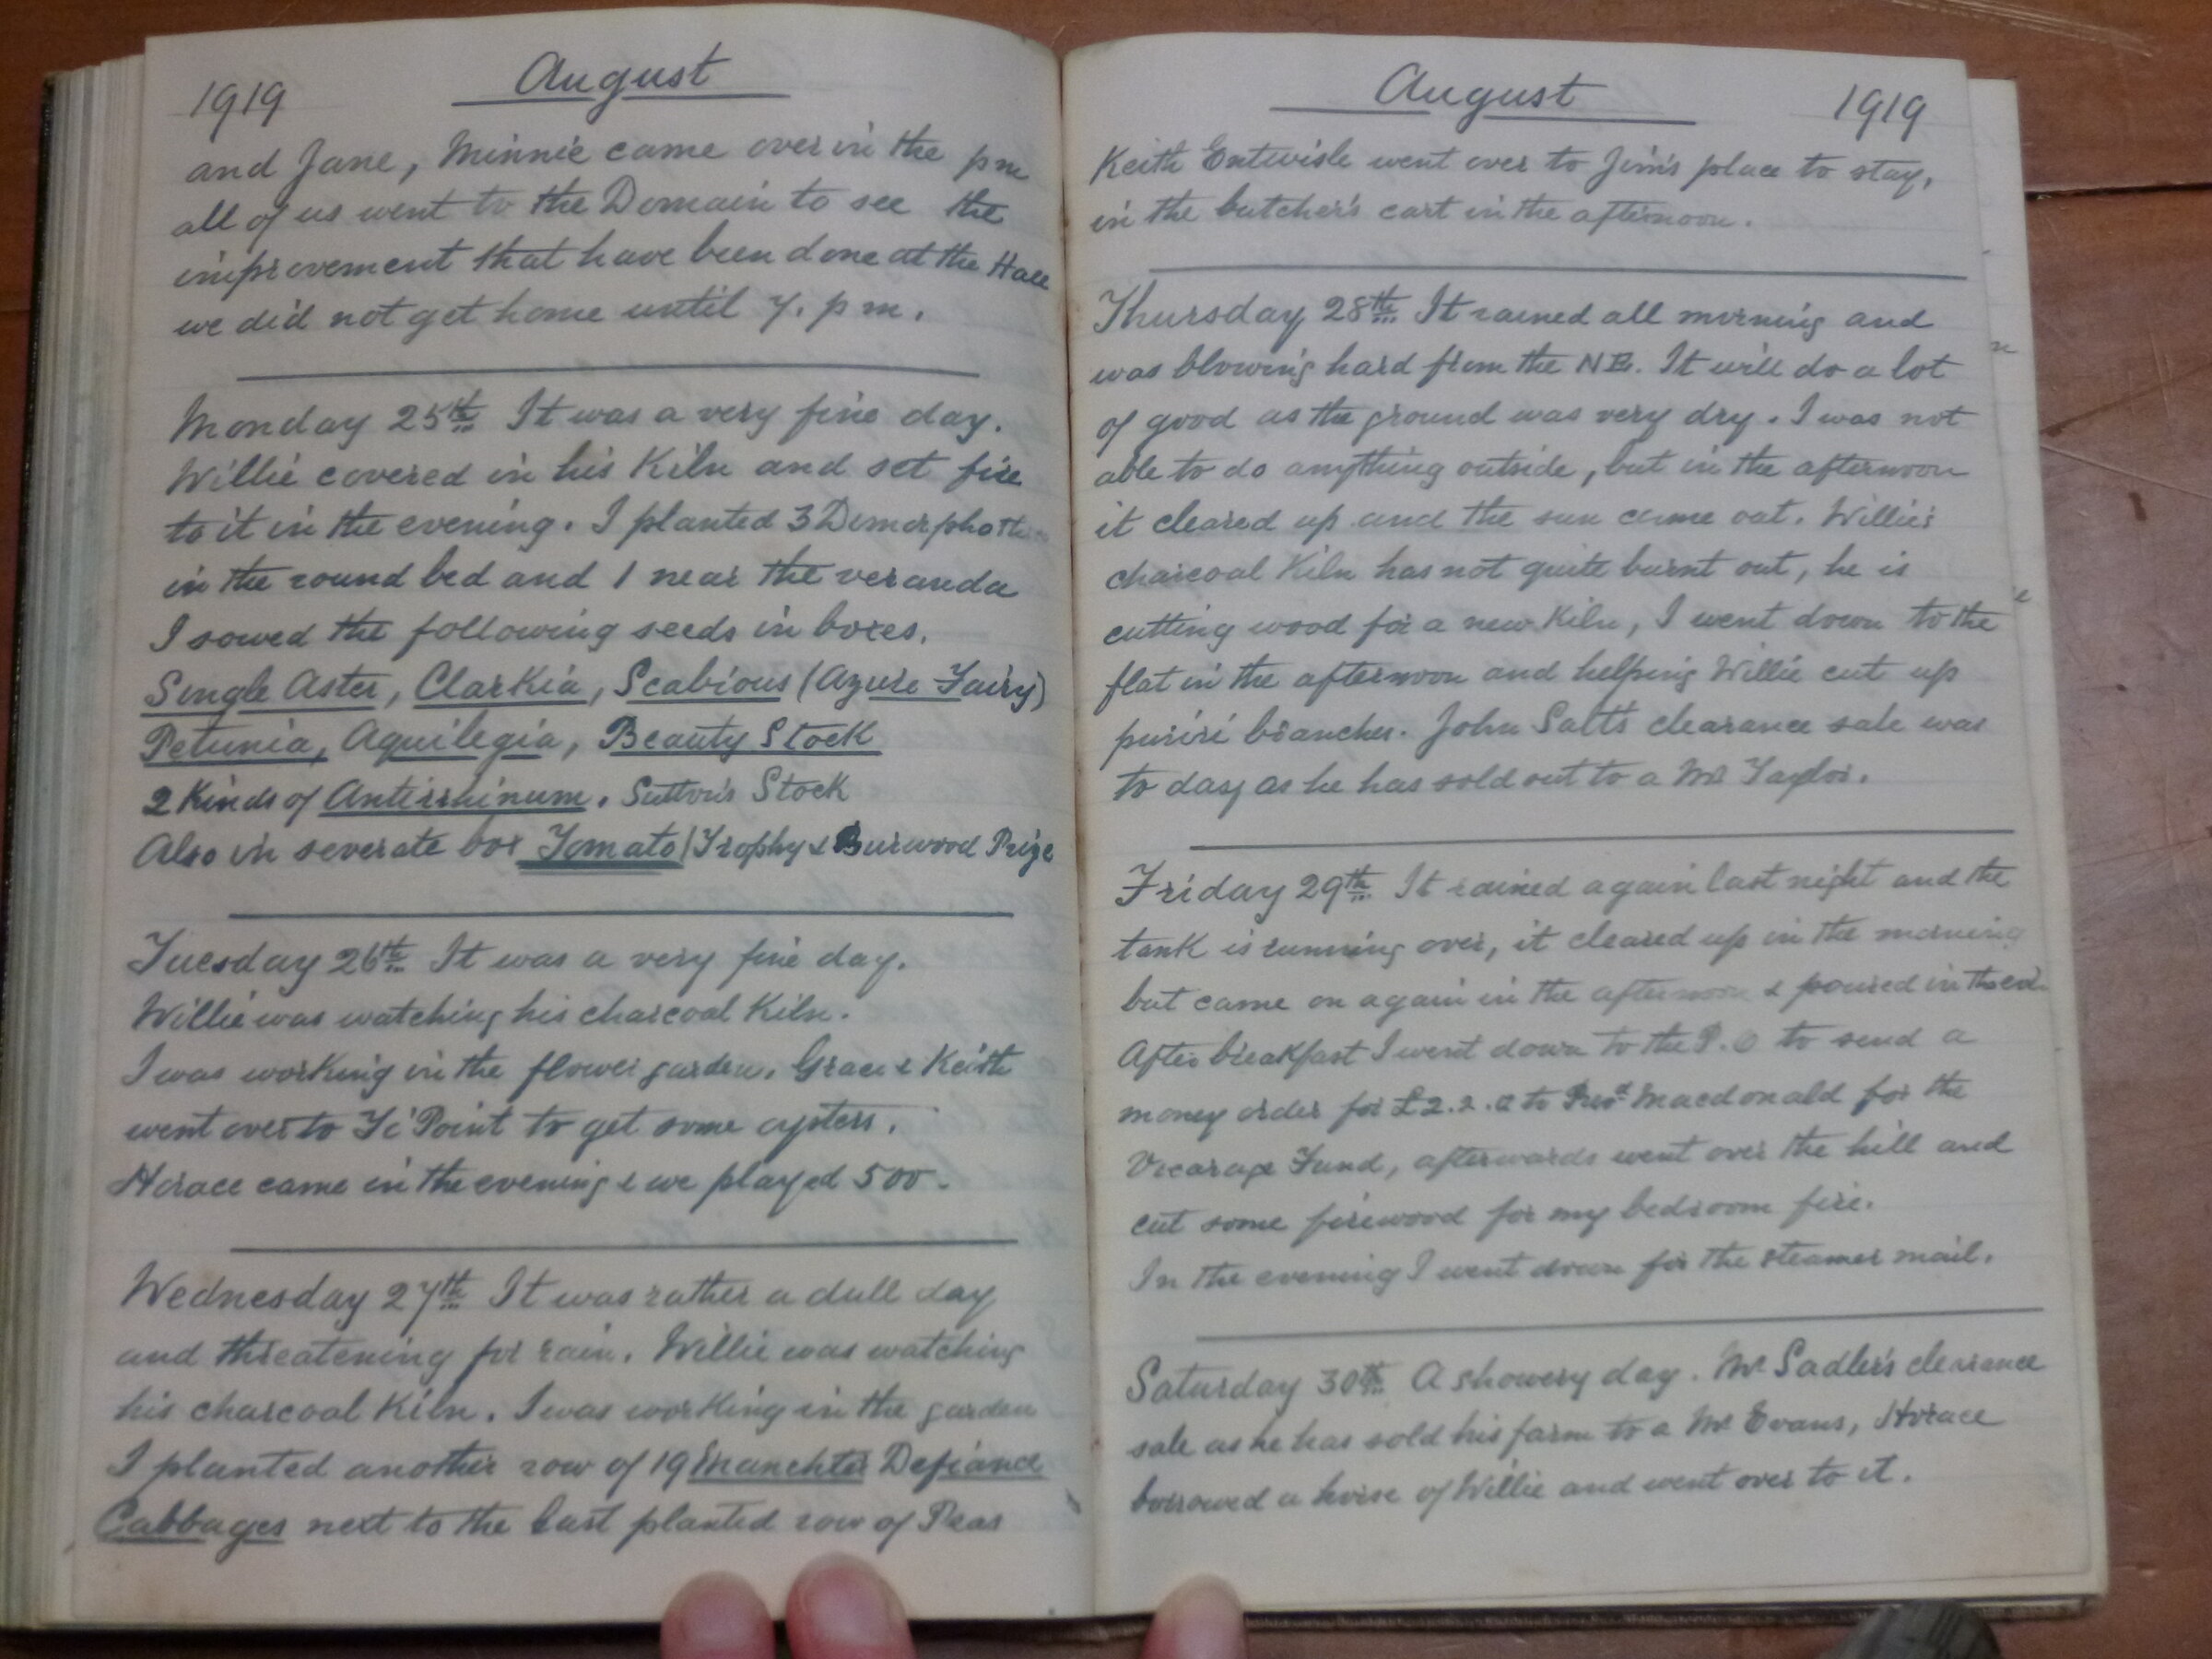 1919 August
and Jane, Minnie came over in the pm
all of us went to the Domain to see the
improvement that have been done at the Hall
we did not get home until 7. p m.
Monday 25th It was a very fine day.
Willie covered in his Kiln and set fire
to it in the evening. I planted 3 Dimorphoth
in the round bed and 1 near the veranda
I sowed the following seeds in boxes.
Single Aster, Clarkia, Scabious (Azure Fairy)
Petunia, Aquilegia, Beauty Stock
2 Kinds of Antirrhinum. Sutton's Stock
Also in severate box Tomato (Trophy & Burwood Prize
Tuesday 26th It was a very fine day.
Willie was watching his charcoal Kiln.
I was working in the flower garden. Grace & Keith
went over to Ti Point to get some oysters.
Horace came in the evening & we played 500.
Wednesday 27th It was rather a dull day
and threatening for rain. Willie was watching
his charcoal Kiln. I was working in the garden
I planted another row of 19 Manchter Defiance
Cabbages next to the last planted row of Peas
August 1919
Keith Entwisle went over to Jim's place to stay,
in the butcher's cart in the afternoon.
Thursday 28th It rained all morning and
was blowing hard from the NE. It will do a lot
of good as the ground was very dry. I was not
able to do anything outside, but in the afternoon
it cleared up and the sun came out. Willie's
charcoal Kiln has not quite burnt out, he is
cutting wood for a new Kiln, I went down to the
flat in the afternoon and helping Willie cut up
puriri branches. John Salt's clearance sale was
to day as he has sold out to a Mr Taylor.
Friday 29th It rained again last night and the
tank is running over, it cleared up in the morning
but came on again in the afternoon & poured in the
After breakfast I went down to the P.O to send a
money order for £2.2.0 to Revd Macdonald for the
Vicarage Fund, afterwards went over the hill and
cut some firewood for my bedroom fire.
In the evening I went down for the steamer mail.
Saturday 30th A showery day. Mr Sadler's clearance
sale as he has sold his farm to a Mr Evans, Horace
borrowed a horse of Willie and went over to it.